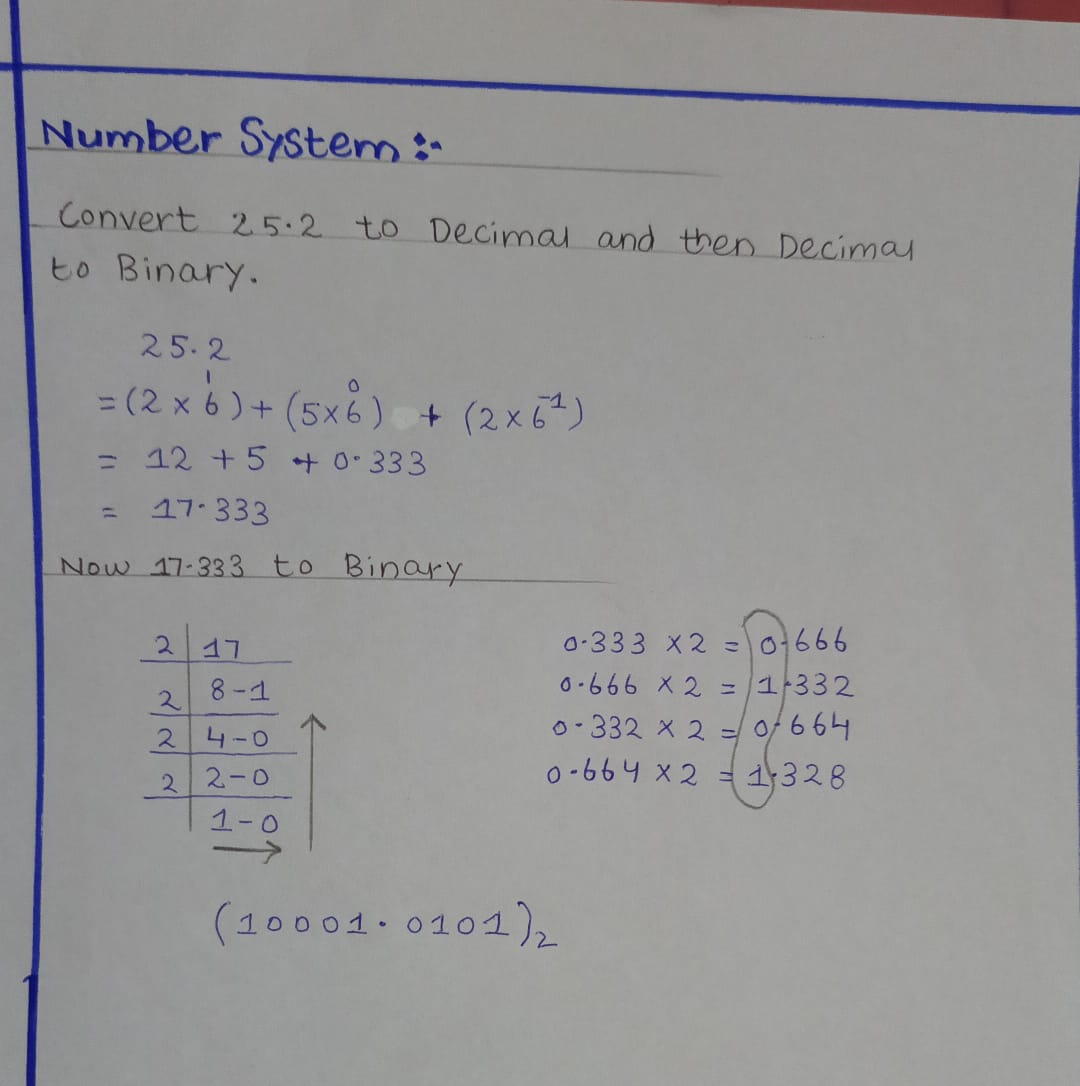 Number System :-
Convert 25.2 to Decimal and then Decimal
to Binary.
25.2
= (2 x 6¹) + (5x6⁰) + (2x6⁻¹)
= 12 + 5 + 0.333
= 17.333
Now 17.333 to Binary
2 | 17
2 | 8-1
2 | 4-0
2 | 2-0
1-0
0.333 x2 = 0.666
0.666 x 2 = 1.332
0.332 x 2 = 0.664
0.664 x2 = 1.328
(10001.0101)₂